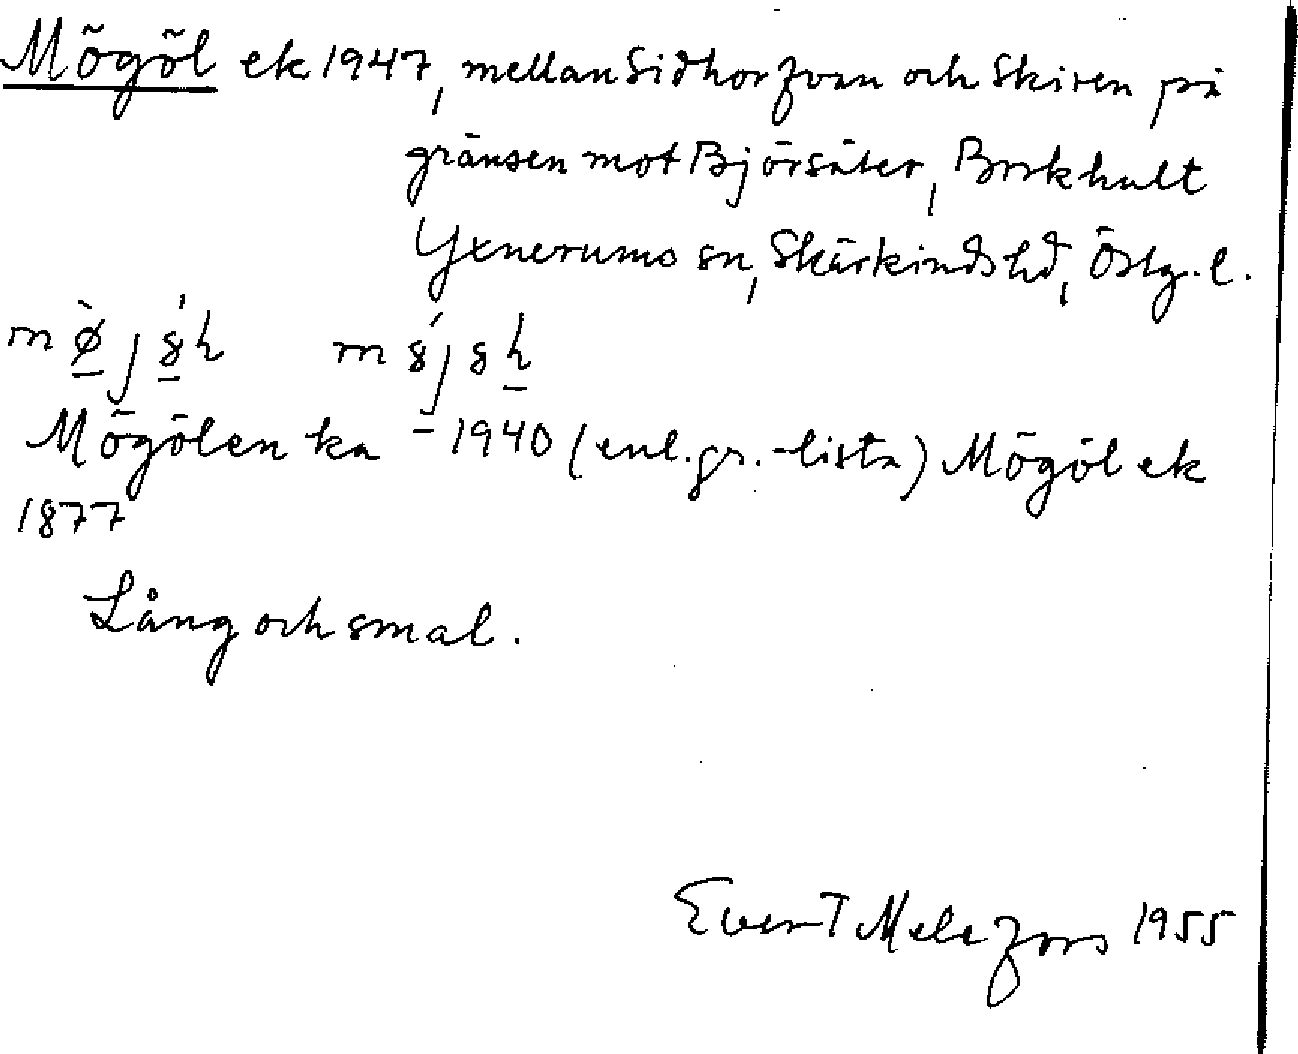 Mögöl ek 1947, mellan Sidhorfvan och Skiren på
gränsen mot Björsäter, Borkhult
Yxnerums sn, Skärkinds hd, Östg. l.
Mögölen ka -1940 (enl. gr.-lista) Mögöl ek
1877
Lång och smal.
Evert Melefors 1955